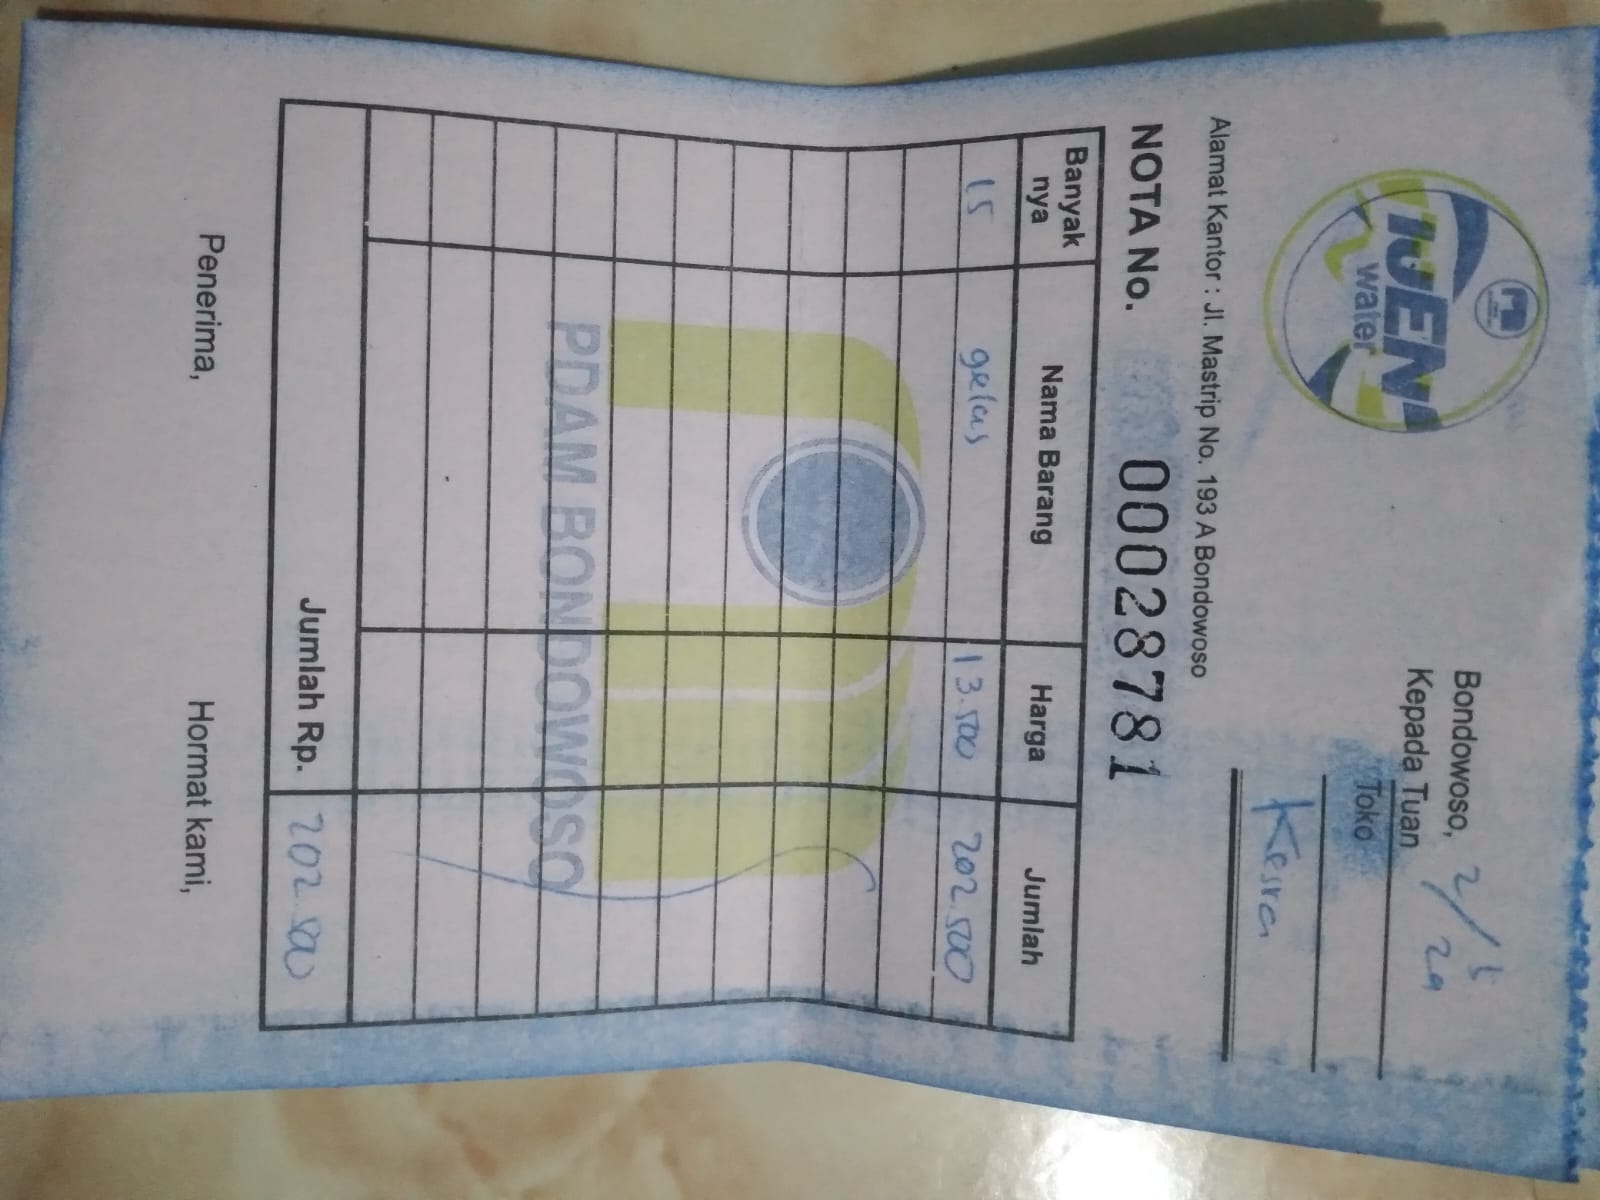 IJEN
water
Bondowoso, 2/5 24
Kepada Tuan
Toko
Kesra
Alamat Kantor : Jl. Mastrip No. 193 A Bondowoso
NOTA No. 00028781
Banyak nya Nama Barang Harga Jumlah
15 gelas 13.500 202.500
PDAM BONDOWOSO
Jumlah Rp. 202.500
Penerima, Hormat kami,